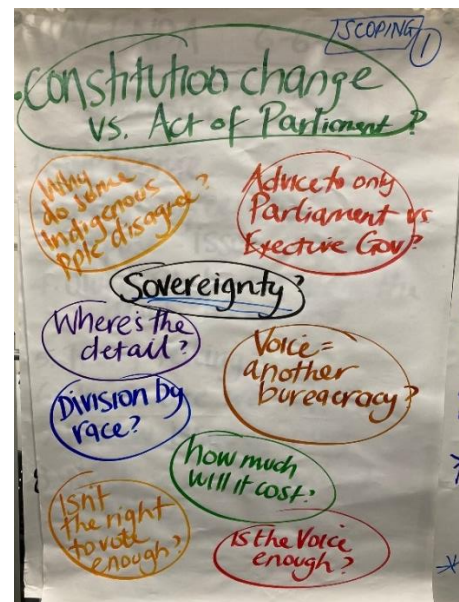 SCOPING 1
Constitution change
vs. Act of Parliament?
Why
do some
Indigenous
Pple disagree?
Advice to only
Parliament vs
Exective Gov?
Sovereignty?
Where's the
detail?
Voice =
another
bureacracy?
Division by
race?
how much
will it cost?
Isn't
the right
to vote
enough?
Is the Voice
enough?